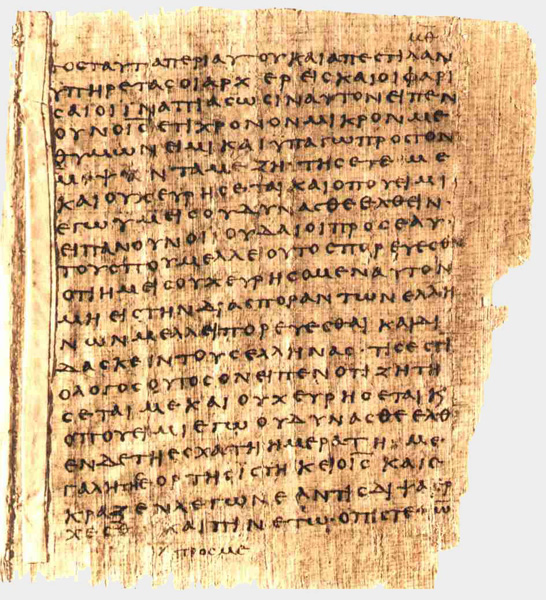 ΜΘ
ΤΟϹΤΑΥΤΑΠΕΡΙΑΥΤΟΥΚΑΙΑΠΕϹΤΙΛΑΝ
ΥΠΗΡΕΤΑϹΟΙΑΡΧΕΡΕΙϹΚΑΙΟΙΦΑΡΙ
ϹΑΙΟΙΙΝΑΠΙΑϹΩϹΙΝΑΥΤΟΝΕΙΠΕΝ
ΟΥΝΟΙ̅Ϲ̅ΕΤΙΧΡΟΝΟΝΜΙΚΡΟΝΜΕ
ΘΥΜΩΝΕΙΜΙΚΑΙΥΠΑΓΩΠΡΟϹΤΟΝ
ΝΤΑΜΕΖΗΤΗϹΕΤΕΜΕ
ΚΑΙΟΥΧΕΥΡΗϹΕΤΑΙΚΑΙΟΠΟΥΕΙΜΙ
ΕΓΩΥΜΕΙϹΟΥΔΥΝΑϹΘΕΕΛΘΕΙΝ·
ΕΙΠΑΝΟΥΝΟΙΙΟΥΔΑΙΟΙΠΡΟϹΕΑΥ
ΤΟΥϹΠΟΥΜΕΛΛΕΙΟΥΤΟϹΠΟΡΕΥΕϹΘ
ΟΤΙΗΜΕΙϹΟΥΧΕΥΡΗϹΟΜΕΝΑΥΤΟΝ
ΜΗΕΙϹΤΗΝΔΙΑϹΠΟΡΑΝΤΩΝΕΛΛΗ
ΝΩΝΜΕΛΛΕΙΠΟΡΕΥΕϹΘΑΙΚΑΙΔΙ
ΔΑϹΚΕΙΝΤΟΥϹΕΛΛΗΝΑϹ·ΤΙϹΕϹΤΙ
ΟΛΟΓΟϹΟΥΤΟϹΟΝΕΙΠΕΝΟΤΙΖΗΤΗ
ϹΕΤΑΙΜΕΚΑΙΟΥΧΕΥΡΗϹΕΤΑΙΚ
ΟΠΟΥΕΙΜΙΕΓΩΟΥΔΥΝΑϹΘΕΕΛΘ
ΕΝΔΕΤΗΕϹΧΑΤΗΗΜΕΡΑΤΗΜΕ
ΓΑΛΗΤΗϹΕΟΡΤΗϹΙϹΤΗΚΕΙΟΙ̅Ϲ̅ΚΑΙΕ
ΚΡΑΖΕΝΛΕΓΩΝΕΑΝΤΙϹΔΙΨΑΕΡ
ΧΕϹΘΩΚΑΙΠΙΝΕΤΩ·ΟΠΙϹΤΕΥΩ
ΠΡΟϹΜΕ